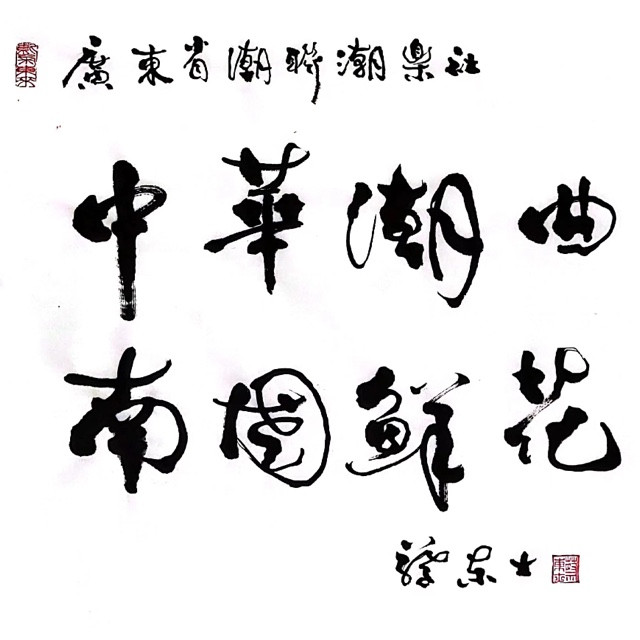 廣東省潮聯潮樂社
中華潮曲
南國鮮花